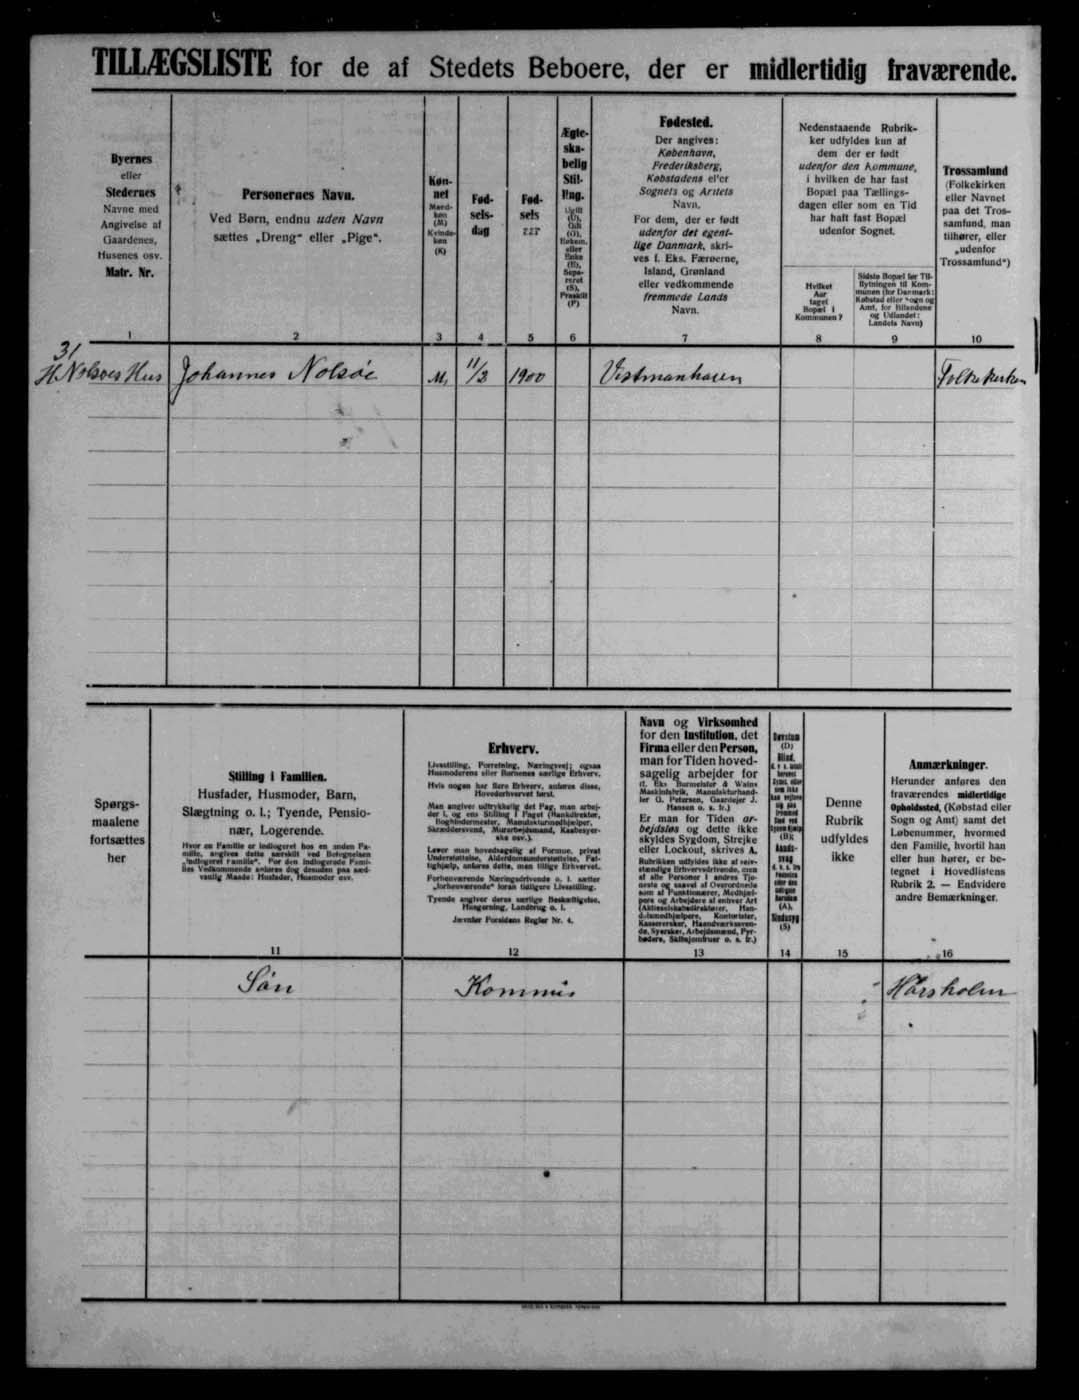 TILLÆGSLISTE for de af Stedets Beboere, der er midlertidig fraværende.
Byernes
eller
Stedernes
Navne med
Angivelse af
Gaardenes,
Husenes osv.
Matr. Nr.
1
Personernes Navn.
Ved Børn, endnu uden Navn
sættes „Dreng“ eller „Pige“.
2
Køn-
net
Mand-
køn
(M)
Kvinde-
køn
(K)
3
Fød-
sels-
dag
4
Fød-
sels
aar
5
Ægte-
ska-
belig
Stil-
ling.
Ugift
(U),
Gift
(G),
Enkem.
eller
Enke
(E),
Sepa-
reret
(S),
Fraskilt
(F)
6
Fødested.
Der angives:
København,
Frederiksberg,
Købstadens eller
Sognets og Amtets
Navn.
For dem, der er født
udenfor det egent-
lige Danmark, skri-
ves f. Eks. Færøerne,
Island, Grønland
eller vedkommende
fremmede Lands
Navn.
7
Nedenstaaende Rubrik-
ker udfyldes kun af
dem der er født
udenfor den Kommune,
i hvilken de har fast
Bopæl paa Tællings-
dagen eller som en Tid
har haft fast Bopæl
udenfor Sognet.
Hvilket
Aar
taget
Bopæl i
Kommunen?
8
Sidste Bopæl før Til-
flytningen til Kom-
munen (for Danmark:
Købstad eller Sogn og
Amt, for Bilandene
og Udlandet:
Landets Navn)
9
Trossamfund
(Folkekirken
eller Navnet
paa det Tros-
samfund, man
tilhører, eller
„udenfor
Trossamfund“)
10
31
H. Nolsøes Hus Johannes Nolsøe M. 11/2 1900 Vestmanhavn Folkekirken
Spørgs-
maalene
fortsættes
her
Stilling i Familien.
Husfader, Husmoder, Barn,
Slægtning o. l.; Tyende, Pensio-
nær, Logerende.
Hvor en Familie er indlogeret hos en anden Fa-
milie, angives dette særskilt ved Betegnelsen
"indlogeret Familie". For den indlogerede Fami-
lies Vedkommende anføres dog desuden paa sæd-
vanlig Maade: Husfader, Husmoder osv.
11
Erhverv.
Livsstilling, Forretning, Næringsvej; ogsaa
Husmoderens eller Børnenes særlige Erhverv.
Hvis nogen har flere Erhverv, anføres disse,
Hovederhvervet først.
Man angiver udtrykkelig det Fag, man arbej-
der i, og ens Stilling i Faget (Bankdirektør,
Bogbindermester, Manufakturmedhjælper,
Skræddersvend, Murarbejdsmand, Kasbesyer-
ske osv.).
Lever man hovedsagelig af Formue, privat
Understøttelse, Alderdomsunderstøttelse, Fat-
tighjælp, anføres dette, men tillige Erhvervet.
Forhenværende Næringsdrivende o. l. sætter
„forhenværende“ foran tidligere Livsstilling.
Tyende angiver deres særlige Beskæftigelse,
Husgerning, Landbrug o. l.
Jævnfør Forsidens Regler Nr. 4.
12
Navn og Virksomhed
for den Institution, det
Firma eller den Person,
man for Tiden hoved-
sagelig arbejder for
(f. Eks Burmeister & Wains
Maskinfabrik, Manufakturhand-
ler G. Petersen, Gaardejer J.
Hansen o. s. fr.)
Er man for Tiden ar-
bejdsløs og dette ikke
skyldes Sygdom, Strejke
eller Lockout, skrives A.
Rubrikken udfyldes ikke af selv-
stændige Erhvervsdrivende, men
af alle Personer i andres Tje-
neste og saavel af Overordnede
som af Funktionærer, Medhjæl-
pere og Arbejdere af enhver Art
(Aktieselskabsdirektører, Han-
delsmedhjælpere, Kontorister,
Kassererersker, Haandværkssven-
de, Syersker, Arbejdsmænd, Fyr-
bødere, Skibsjomfruer o. s. fr.)
13
Døvstum
(D)
Blind,
(B);
Aands-
svag
(A),
Sindssyg
(S)
14
Denne
Rubrik
udfyldes
ikke
15
Anmærkninger.
Herunder anføres den
fraværendes midlertidige
Opholdssted, (Købstad eller
Sogn og Amt) samt det
Løbenummer, hvormed
den Familie, hvortil han
eller hun hører, er be-
tegnet i Hovedlistens
Rubrik 2. — Endvidere
andre Bemærkninger.
16
Søn Kommis Hørsholm